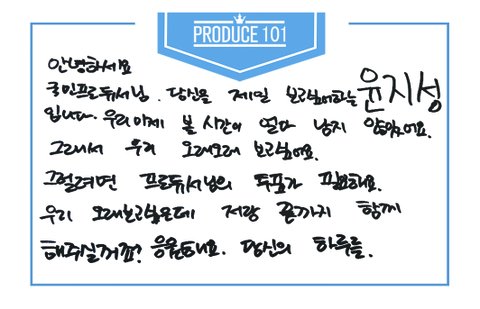 PRODUCE 101
안녕하세요
국민프로듀서님. 당신을 제일 보고싶어하는 윤지성
입니다. 우리 이제 볼 시간이 얼마 남지 않았어요.
그래서 우리 오래오래 보고싶어요.
그럴려면 프로듀서님의 투표가 필요해요.
우리 오래보고싶은데 저랑 끝까지 함께
해주실거죠? 응원해요. 당신의 하루를.